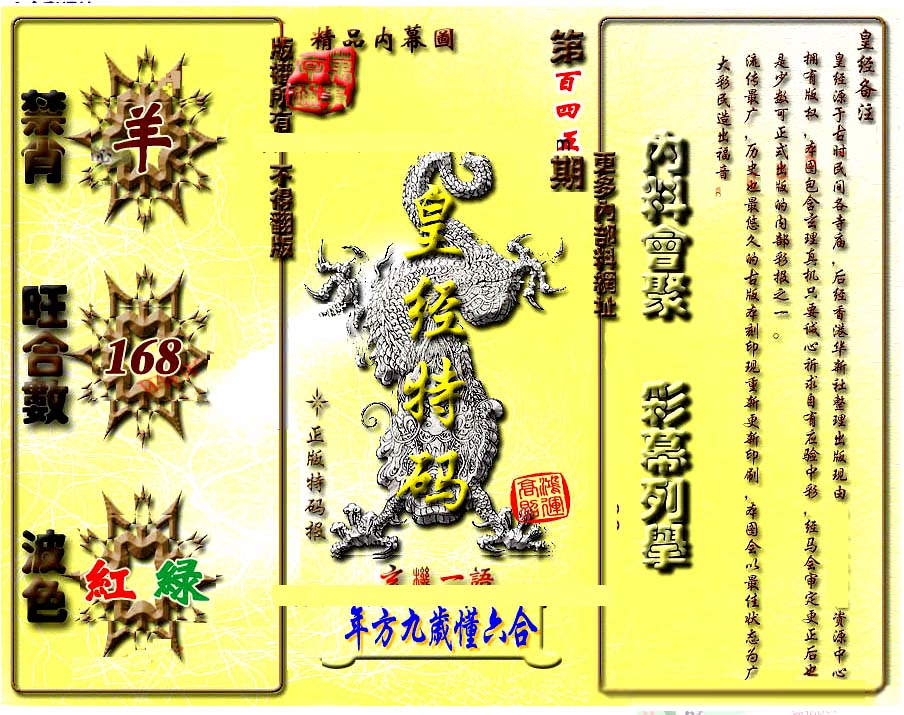 禁肖
羊
旺合數
168
波色
紅 綠
版權所有
不得翻版
精品内幕圖
第百四五期
皇经特码
正版特码报
鴻運
高照
玄機一語
年方九歲懂六合
更多内部料網址
内料會聚
彩幕列舉
皇经备注
皇经源于古时民间各寺庙，后经香港华新社整理出版现由 资源中心
拥有版权，本图包含玄理真机只要诚心祈求自有应验中彩，经马会审定更正后也
是少数可正式出版的内部彩报之一。
流传最广，历史也最悠久的古版本刻印现重新更新印刷，本图会以最佳状态为广
大彩民造出福音